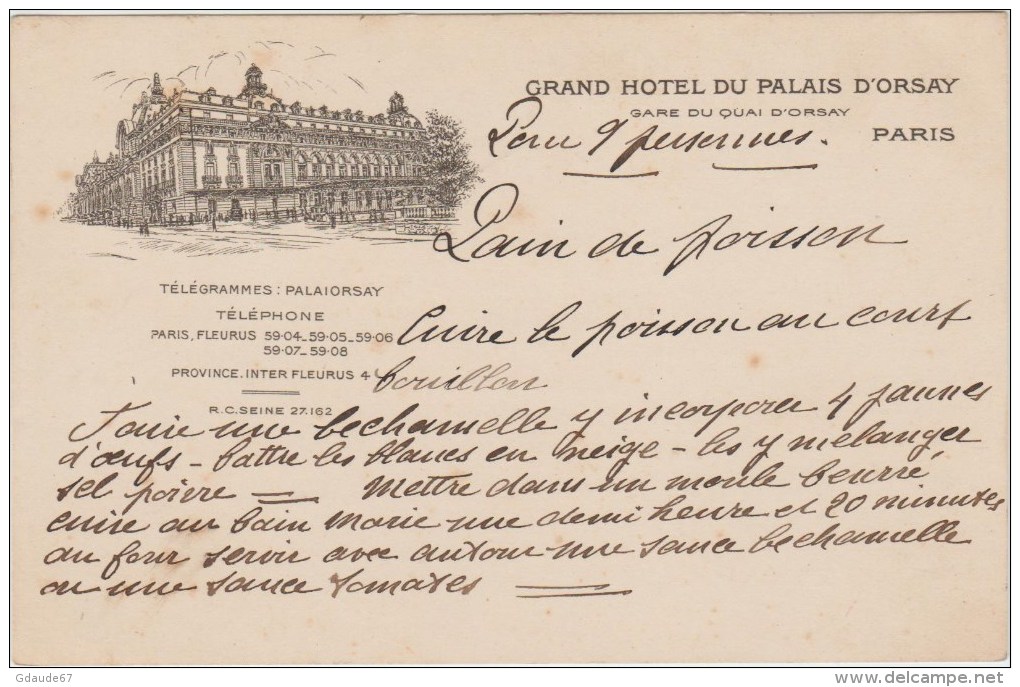 GRAND HOTEL DU PALAIS D'ORSAY
GARE DU QUAI D'ORSAY
PARIS
Pour 9 personnes.
Pain de poisson
TÉLÉGRAMMES: PALAIORSAY
TÉLÉPHONE
PARIS, FLEURUS 59-04_59-05_59-06
59-07_59-08
PROVINCE. INTER FLEURUS 4
R.C. SEINE 27.162
Cuire le poisson au court
bouillon
Faire une bechamelle y incorporer 4 jaunes
d'œufs - battre les blancs en neige - les y melanger
sel poivre = Mettre dans un moule beurré
cuire au bain marie une demi heure et 20 minutes
au four servir avec autour une sauce bechamelle
ou une sauce tomates =
Gdaude67
delcampe.net